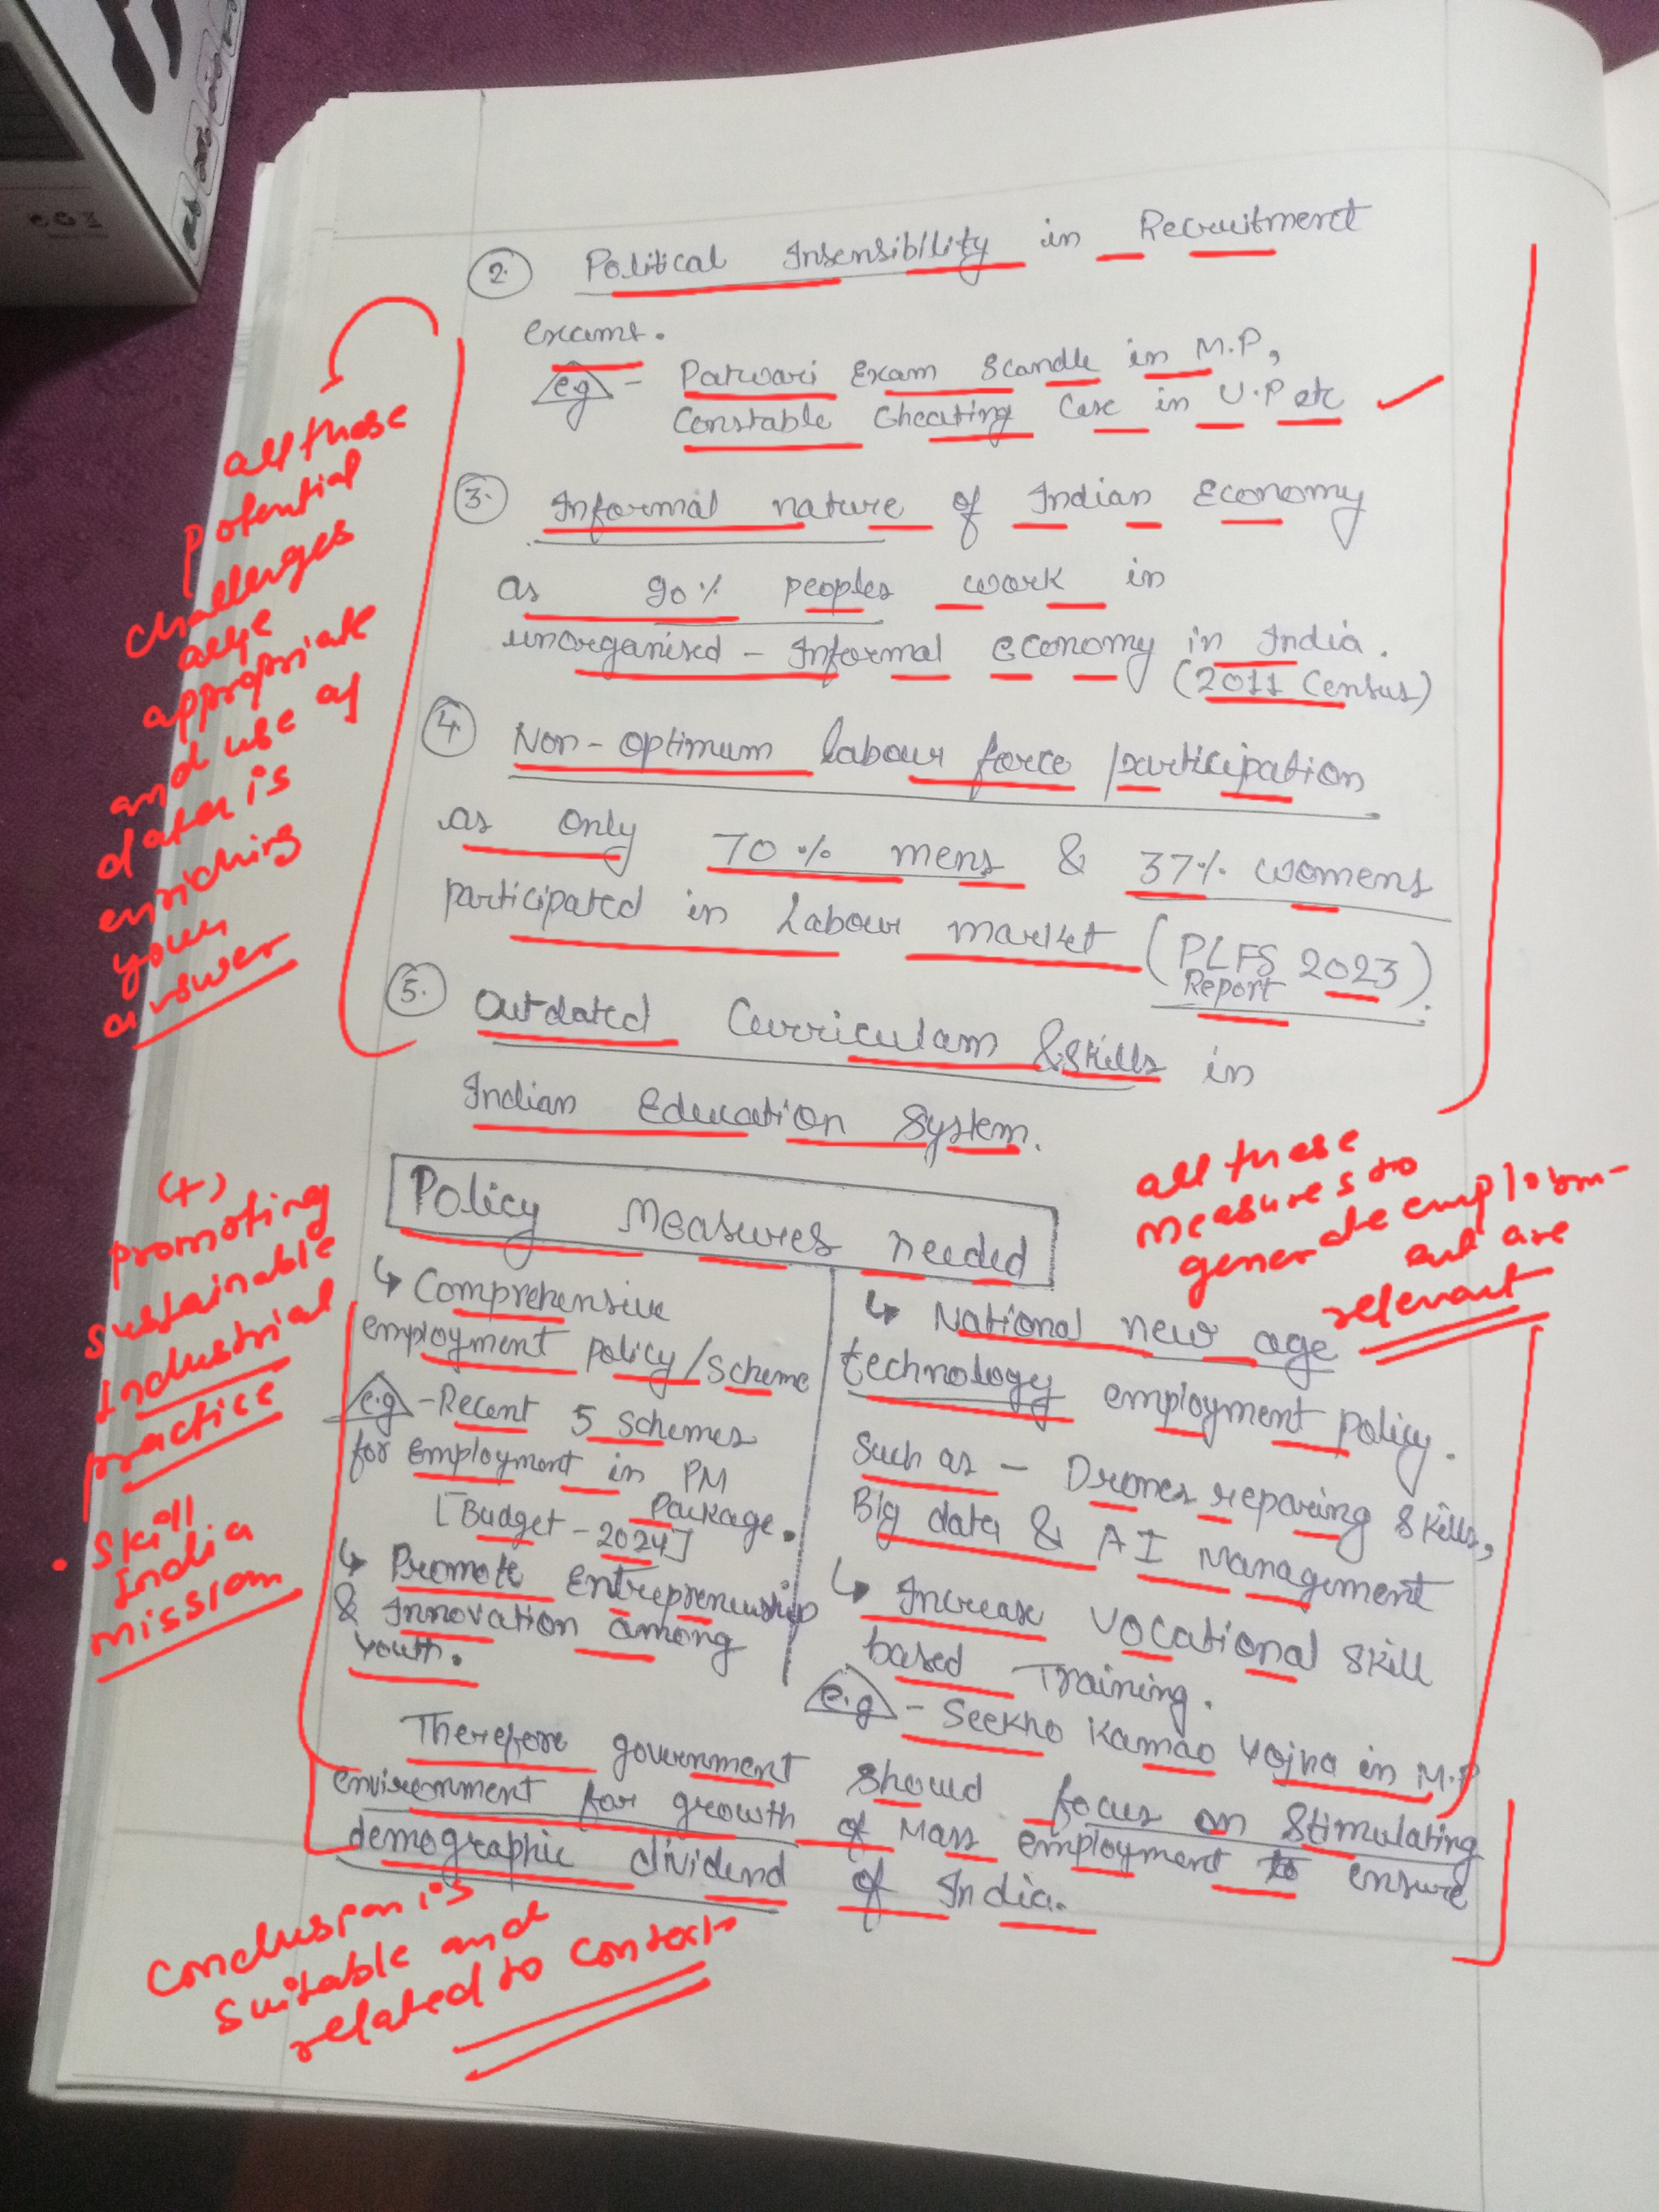 2. Political Insensibility in Recruitment
exams.
e.g - Patwari Exam Scandle in M.P,
Constable Cheating Case in U.P etc
3. Informal nature of Indian Economy
as 90% peoples work in
unorganised - Informal economy in India.
(2011 Census)
4. Non-optimum labour force participation
as only 70% mens & 37% womens
participated in Labour market (PLFS 2023
Report).
5. Outdated Curriculam & skills in
Indian Education System.
all these
potential
challenges
are
appropriate
and use of
data is
enriching
your
answer
Policy Measures needed
↳ Comprehensive
employment policy/scheme
e.g - Recent 5 schemes
for employment in PM
Package.
[Budget - 2024]
↳ Promote Entrepreneurship
& Innovation among
youth.
↳ National new age
technology employment policy.
Such as - Drones reparing skills,
Big data & AI Management
↳ Increase vocational skill
based Training.
e.g - Seekho Kamao Yojna in M.P
all these
measures to
generate employm-
ent are
relevant
(+)
promoting
sustainable
Industrial
practice
• Skill
India
mission
Therefore government should focus on stimulating
environment for growth of Mass employment to ensure
demographic dividend of India.
Conclusion is
suitable and
related to context